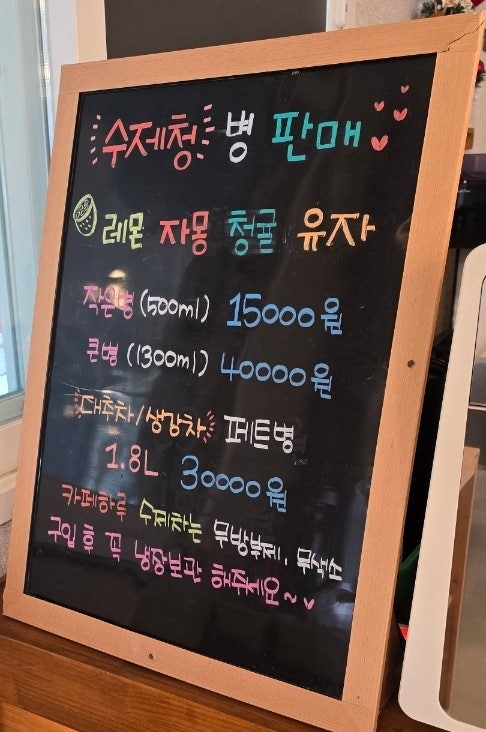 수제청 병 판매
레몬 자몽 청귤 유자
작은병 (500ml) 15000원
큰병 (1300ml) 40000원
대추차/생강차 페트병
1.8L 30000원
카페하루 수제차는 무방부제, 무색소
구입 후 꼭 냉장보관 해주세요~